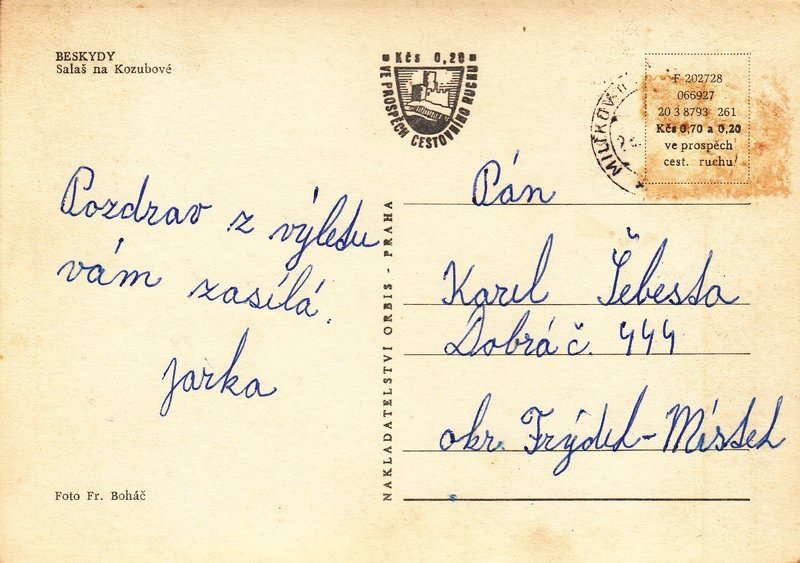 BESKYDY
Salaš na Kozubové
Kčs 0,20
VE PROSPĚCH CESTOVNÍHO RUCHU
MILÍKOV
F 202728
066927
20 3 8793 261
Kčs 0,70 a 0,20
ve prospěch
cest. ruchu
Pozdrav z výletu
vám zasílá.
Jarka
NAKLADATELSTVÍ ORBIS - PRAHA
Pán
Karel Šebesta
Dobrá č. 444
okr. Frýdek-Místek
Foto Fr. Boháč